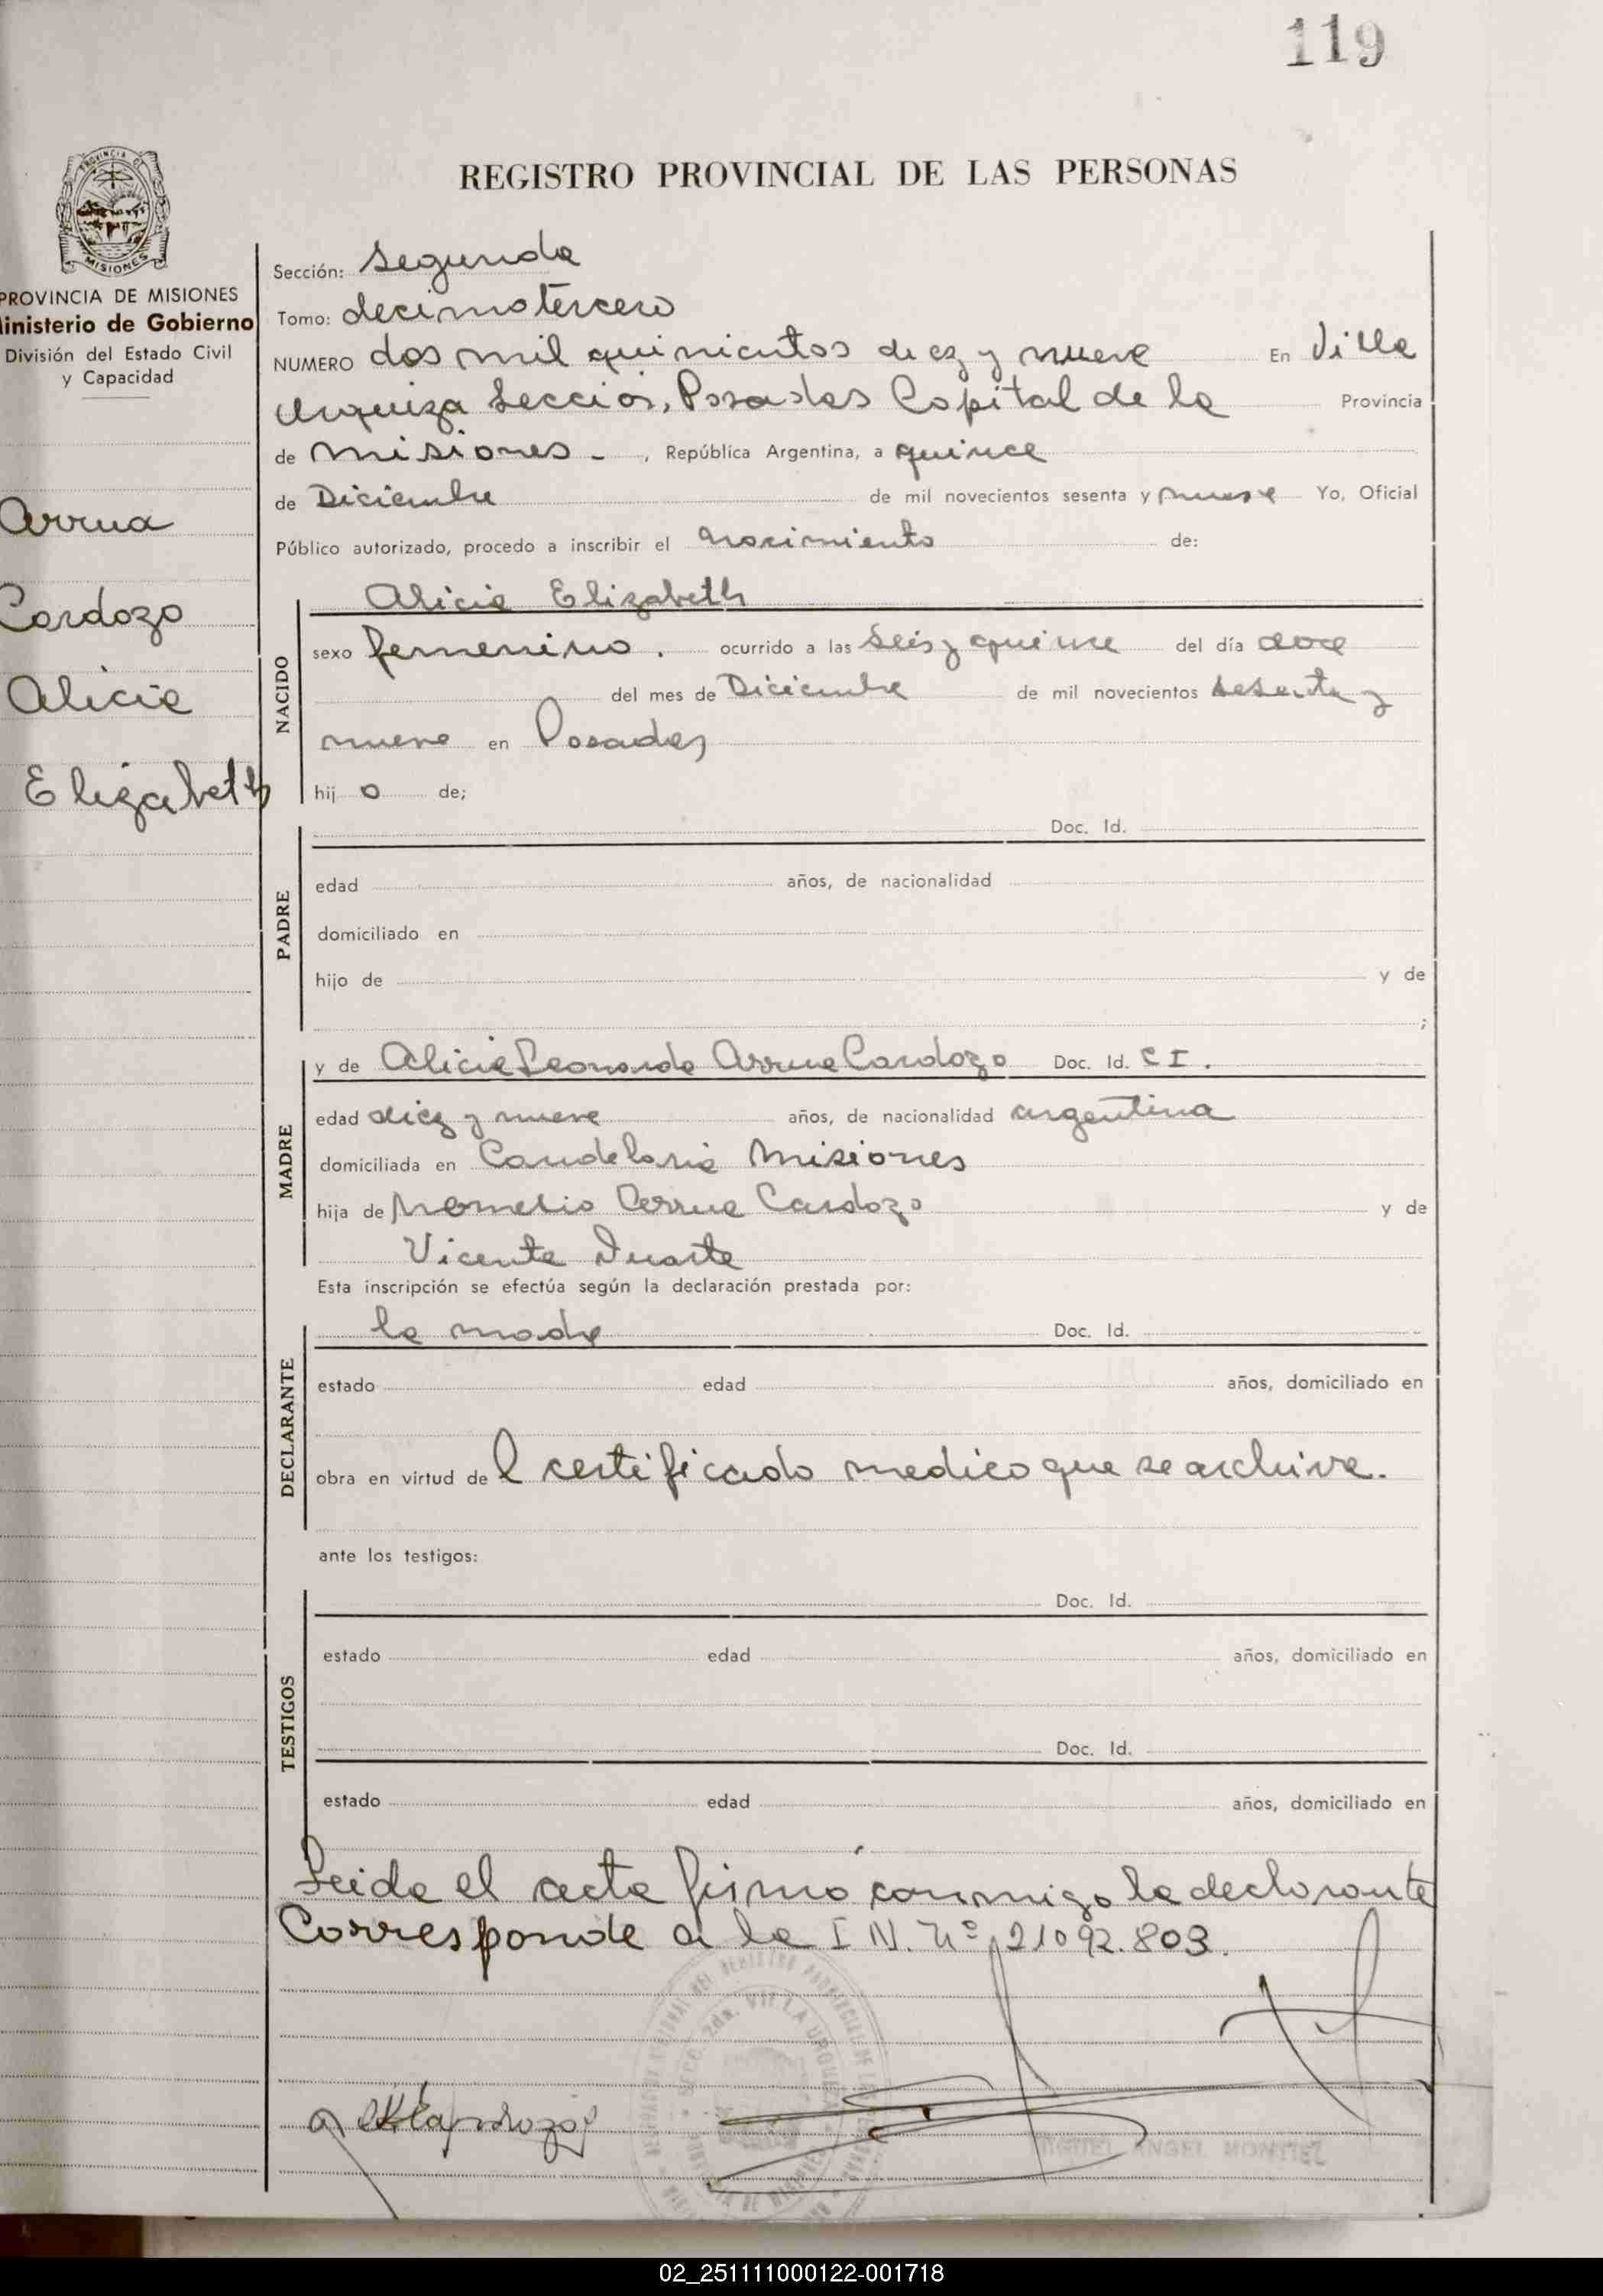 119
REGISTRO PROVINCIAL DE LAS PERSONAS
PROVINCIA DE
MISIONES
PROVINCIA DE MISIONES
Ministerio de Gobierno
División del Estado Civil
y Capacidad
Arrua
Cardozo
Alicia
Elizabeth
Sección: Segunda
Tomo: decimotercero
NUMERO dos mil quinientos diez y nueve En Villa
Urquiza Sección, Posadas Capital de la Provincia
de Misiones - , República Argentina, a quince
de Diciembre de mil novecientos sesenta y nueve Yo, Oficial
Público autorizado, procedo a inscribir el nacimiento de:
NACIDO
Alicia Elizabeth
sexo femenino. ocurrido a las seis y quince del día doce
del mes de Diciembre de mil novecientos sesenta y
nueve en Posadas
hij o de;
PADRE
Doc. Id.
edad años, de nacionalidad
domiciliado en
hijo de y de
;
MADRE
y de Alicia Leonarda Arrua Cardozo Doc. Id. C I.
edad diez y nueve años, de nacionalidad argentina
domiciliada en Candelaria Misiones
hija de Nemesio Arrua Cardozo y de
Vicenta Duarte
Esta inscripción se efectúa según la declaración prestada por:
DECLARANTE
la madre Doc. Id.
estado edad años, domiciliado en
obra en virtud de l certificado medico que se archiva.
ante los testigos:
TESTIGOS
Doc. Id.
estado edad años, domiciliado en
Doc. Id.
estado edad años, domiciliado en
Leida el acta firmó conmigo la declarante
Corresponde a la I N. nº 21092.803.
MIGUEL ANGEL MONTIEL
02_251111000122-001718